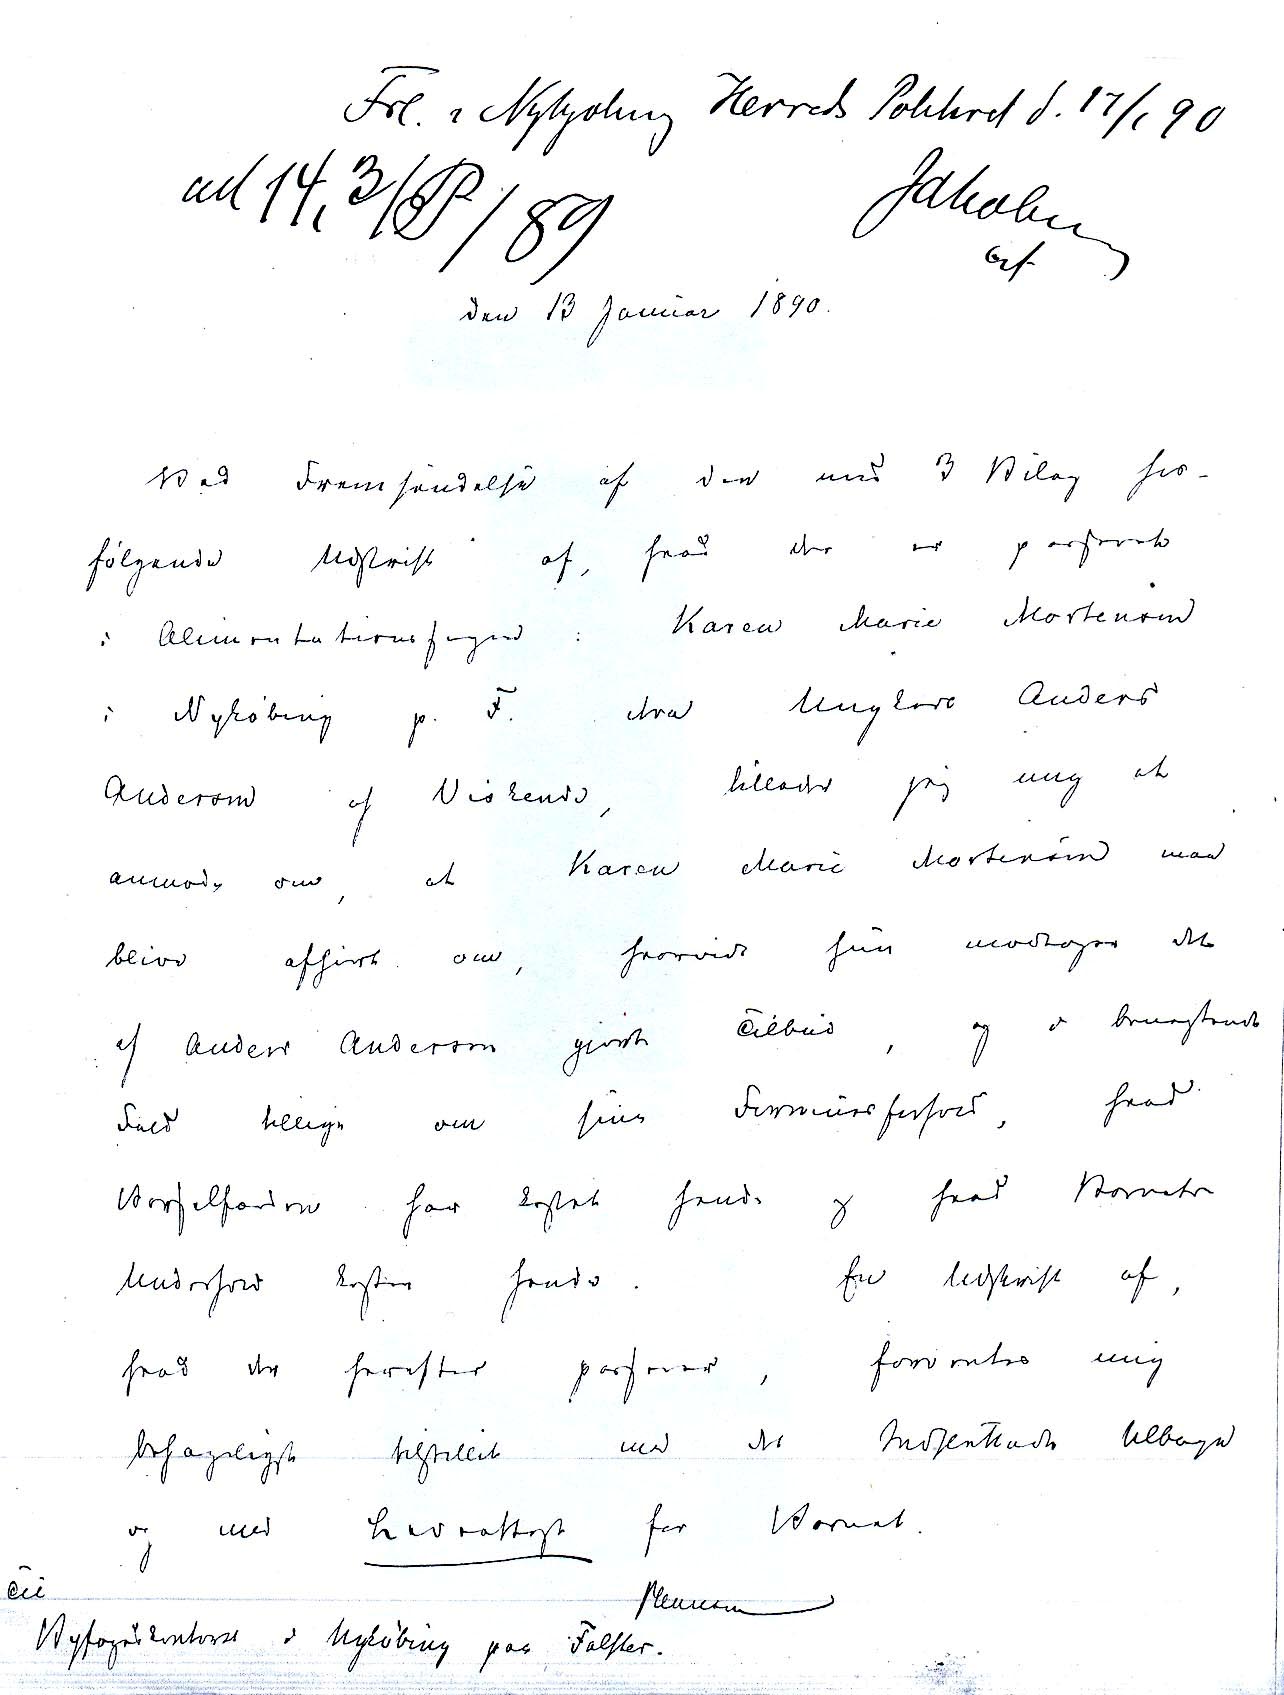 Frl. i Nykjøbing Herreds Politiret d. 17/1 90
ad 14, 3/89
Jakobsen
cst
den 13 Januar 1890.
Ved Fremsendelse af den med 3 Bilag her-
følgende Udskrift af, hvad der er passeret
i Alimentationssagen : Karen Marie Mortensen
i Nykøbing p. F. ctra Ungkarl Anders
Andersen af Viskende, tillader jeg mig at
anmode om, at Karen Marie Mortensen maa
blive afhørt om, hvorvidt hun modtager det
af Anders Andersen gjorte Tilbud, og i benægtende
Fald tillige om sine Formuesforhold, hvad
Barselfærden har kostet hende og hvad Barnets
Underhold koster hende. En Udskrift af,
hvad der herefter passerer, forventes mig
behageligst tilstillet med det Indsendte tilbage
og med Levnattest for Barnet.
Til
Byfogedkontoret i Nykøbing paa Falster.